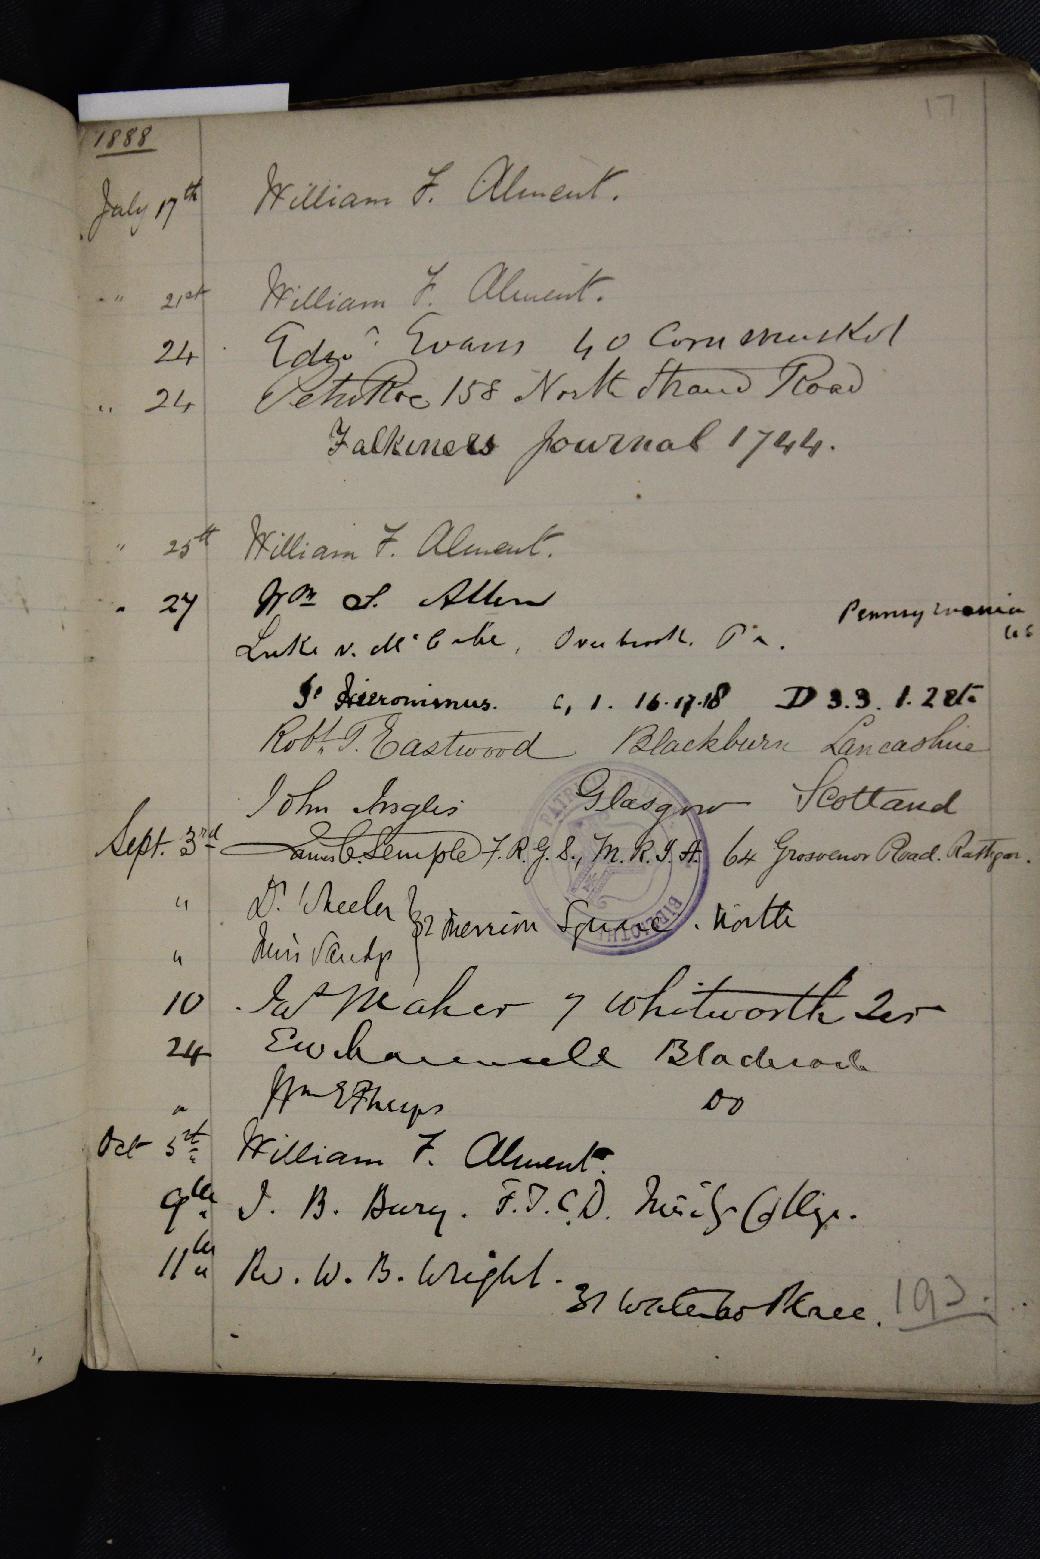 17
1888
July 17th William F. Alment.
" 21st William F. Alment.
24 Edwd Evans 40 Cornmarket
" 24 Peter Roe 158 North Strand Road
Falkiners Journal 1744.
" 25th William F. Alment.
" 27 Wm S. Allen
Pennsylvania
US
Luke V. McCabe, Overbrook. Pa.
St Hieronimus. C, 1. 16.17.18 D 3.3. 1.2 etc
Robt. T. Eastwood Blackburn Lancashire
John Inglis Glasgow Scotland
Sept. 3rd James C. Semple F.R.G.S., M.R.I.A. 64 Grosvenor Road. Rathgar.
" Dr Wheeler
32 Merrion Square. North
" Miss Sandys
10 Jas Maher 7 Whitworth Ter
24 Blackrock
" Wm E Phelps Do
Oct 5th William F. Alment.
9th J. B. Bury. F.T.C.D. Trinity College.
11th Rev. W. B. Wright.
31 Waterloo Place.
193.